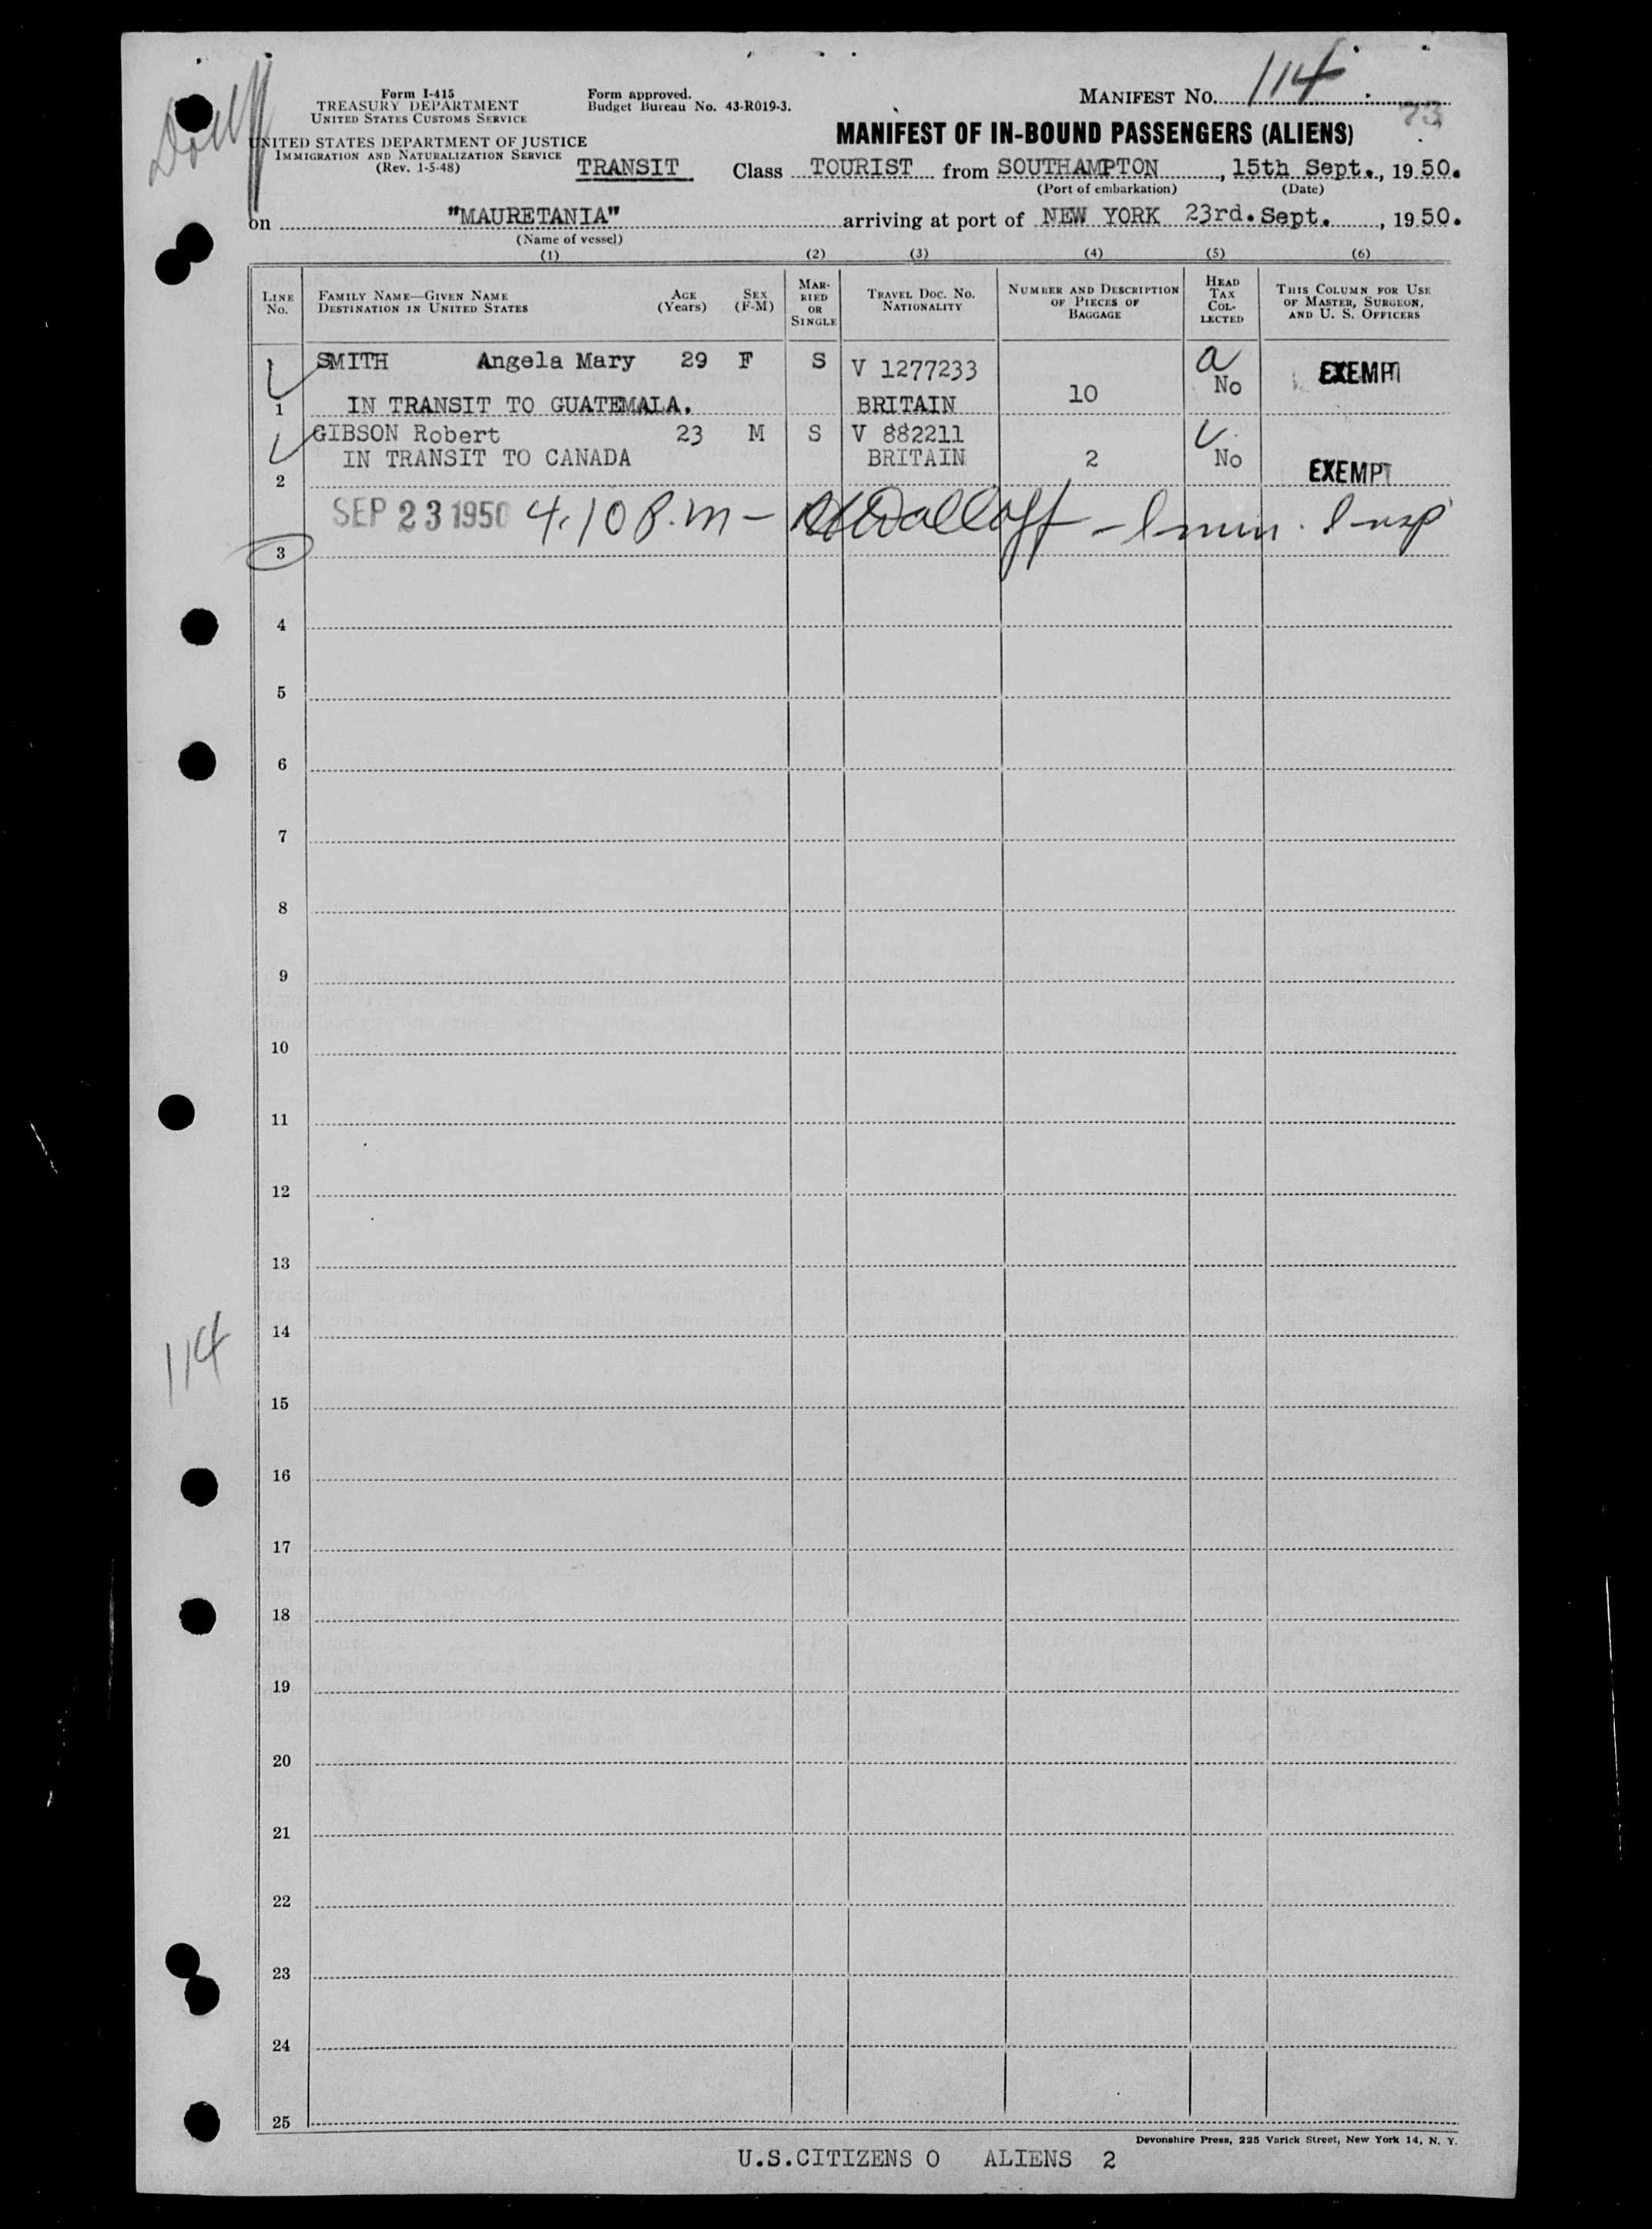 MANIFEST NO. 114
73
Form I-415
TREASURY DEPARTMENT
UNITED STATES CUSTOMS SERVICE
UNITED STATES DEPARTMENT OF JUSTICE
IMMIGRATION AND NATURALIZATION SERVICE
(Rev. 1-5-48)
Form approved.
Budget Bureau No. 43-R019-3.
MANIFEST OF IN-BOUND PASSENGERS (ALIENS)
TRANSIT Class TOURIST from SOUTHAMPTON, 15th Sept., 1950.
(Port of embarkation) (Date)
on "MAURETANIA" arriving at port of NEW YORK 23rd. Sept., 1950.
(Name of vessel)
(1) (2) (3) (4) (5) (6)
LINE No. FAMILY NAME—GIVEN NAME DESTINATION IN UNITED STATES AGE (Years) SEX (F-M) MARRIED OR SINGLE TRAVEL DOC. NO. NATIONALITY NUMBER AND DESCRIPTION OF PIECES OF BAGGAGE HEAD TAX COLLECTED THIS COLUMN FOR USE OF MASTER, SURGEON, AND U. S. OFFICERS
SMITH Angela Mary 29 F S V 1277233 10 a No EXEMPT
1 IN TRANSIT TO GUATEMALA. BRITAIN
GIBSON Robert 23 M S V 882211
IN TRANSIT TO CANADA BRITAIN 2 No EXEMPT
2
SEP 23 1950 4.10 P.m - - Imm. Insp
3
4
5
6
7
8
9
10
11
12
13
14
114
15
16
17
18
19
20
21
22
23
24
25
Devonshire Press, 225 Varick Street, New York 14, N. Y.
U.S.CITIZENS 0 ALIENS 2